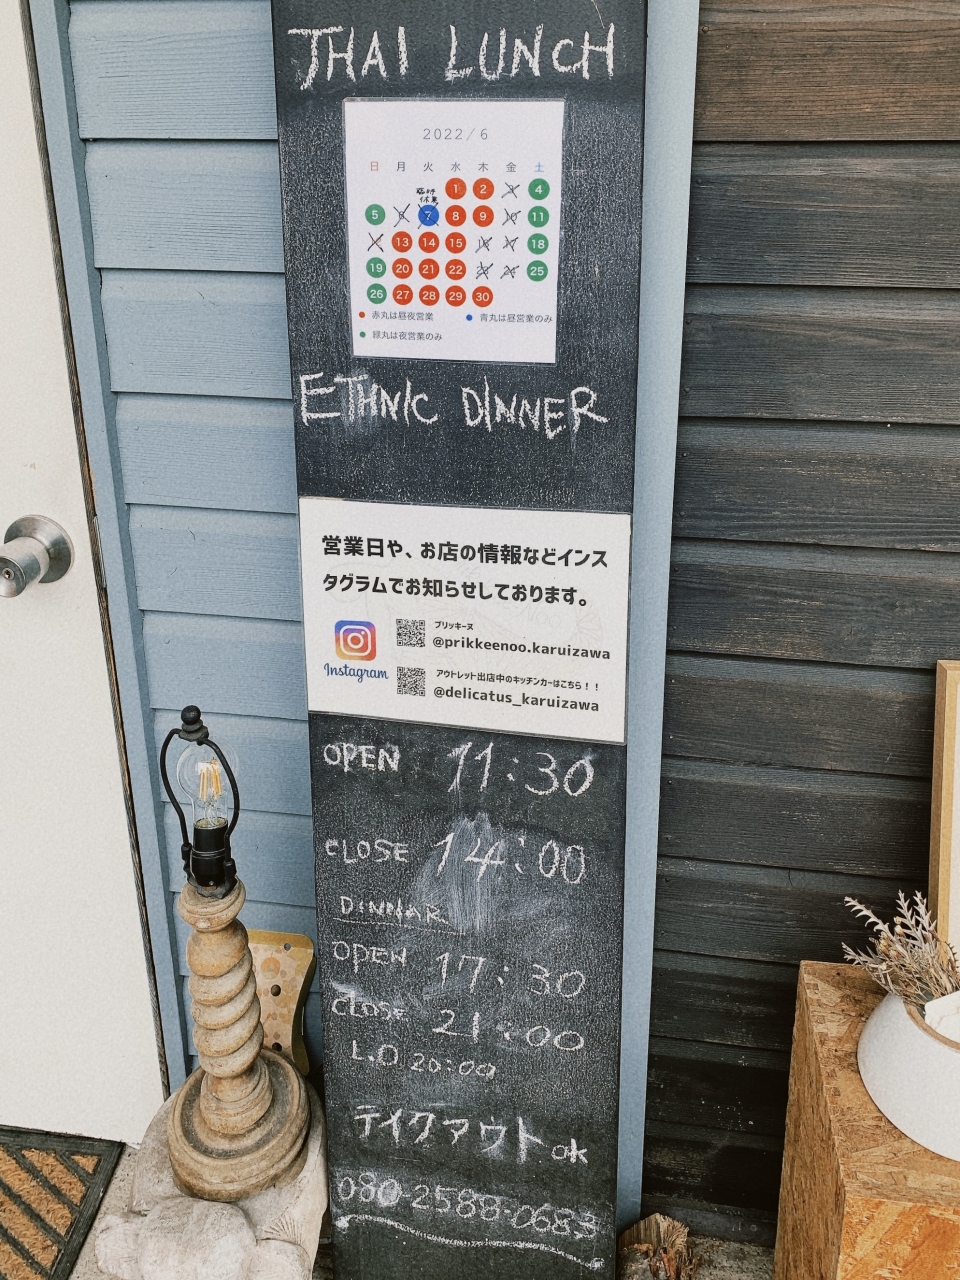 THAI LUNCH
2022/6
日 月 火 水 木 金 土
1 2 3 4
5 6 7 8 9 10 11
13 14 15 16 17 18
19 20 21 22 23 24 25
26 27 28 29 30
赤丸は昼夜営業 青丸は昼営業のみ
緑丸は夜営業のみ
ETHNIC DINNER
営業日や、お店の情報などインス
タグラムでお知らせしております。
プリッキーヌ
@prikkeenoo.karuizawa
Instagram
アウトレット出店中のキッチンカーはこちら！！
@delicatus_karuizawa
OPEN 11:30
CLOSE 14:00
DINNAR
OPEN 17:30
CLOSE 21:00
L.O 20:00
テイクアウトok
080-2588-0683